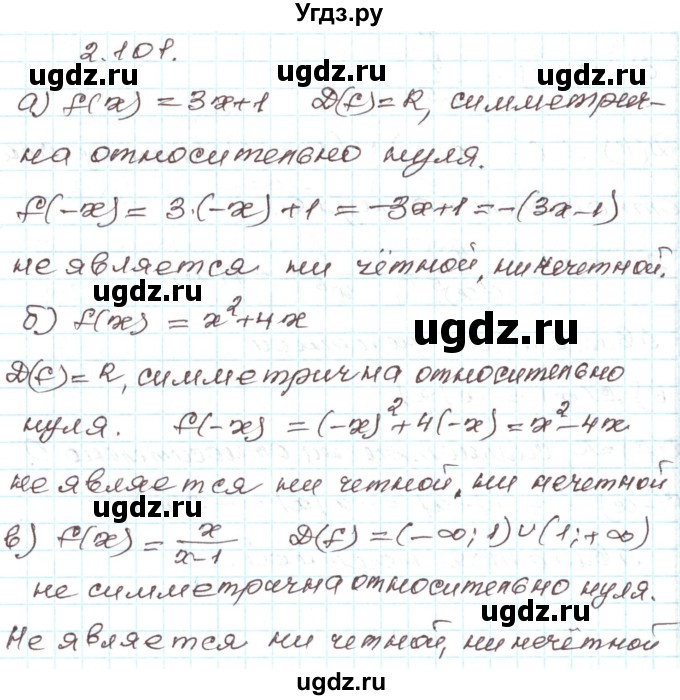 Угдз.ру
2.101.
ugdz.ru ugdz.ru ugdz.ru
а) f(x) = 3x+1 D(f)=R, симметрич-
на относительно нуля.
f(-x) = 3·(-x)+1 = -3x+1 = -(3x-1)
не является ни чётной, ни нечетной.
ugdz.ru
б) f(x) = x²+4x
ugdz.ru
D(f)=R, симметрична относительно
нуля. f(-x) = (-x)²+4(-x) = x²-4x
не является ни четной, ни нечетной
ugdz.ru
в) f(x) = x/(x-1) D(f) = (-∞; 1)∪(1; +∞)
не симметрична относительно нуля.
ugdz.ru
Не является ни четной, ни нечётной